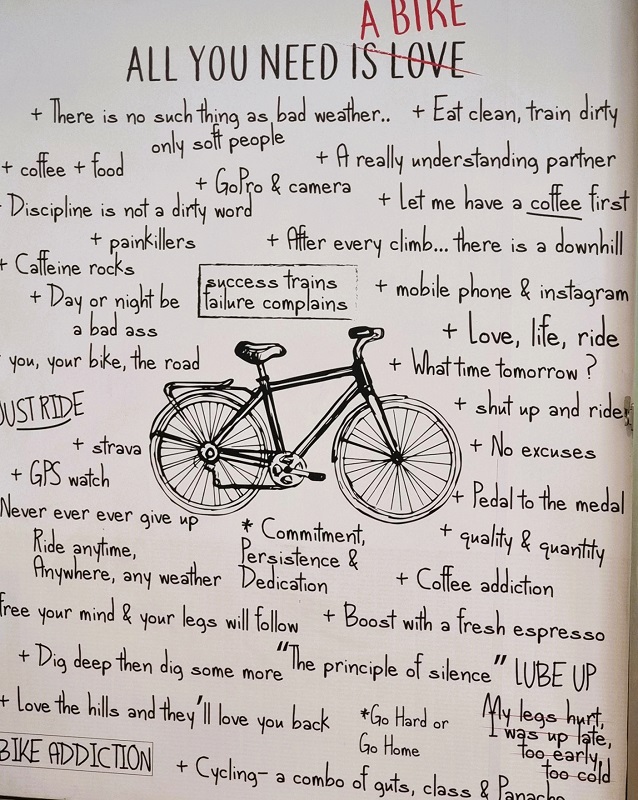 A BIKE
ALL YOU NEED IS LOVE
+ There is no such thing as bad weather.. + Eat clean, train dirty
only soft people
+ coffee + food + A really understanding partner
+ GoPro & camera
Discipline is not a dirty word + Let me have a coffee first
+ painkillers + After every climb... there is a downhill
+ Caffeine rocks
success trains
failure complains
+ mobile phone & instagram
+ Day or night be
a bad ass
+ Love, life, ride
you, your bike, the road + What time tomorrow ?
JUST RIDE + shut up and ride
+ strava + No excuses
+ GPS watch
+ Pedal to the medal
Never ever ever give up
* Commitment,
Persistence &
Dedication
+ quality & quantity
Ride anytime,
Anywhere, any weather
+ Coffee addiction
free your mind & your legs will follow + Boost with a fresh espresso
+ Dig deep then dig some more "The principle of silence" LUBE UP
+ Love the hills and they'll love you back
*Go Hard or
Go Home
My legs hurt,
I was up late,
too early,
too cold
BIKE ADDICTION
+ Cycling- a combo of guts, class & Panache